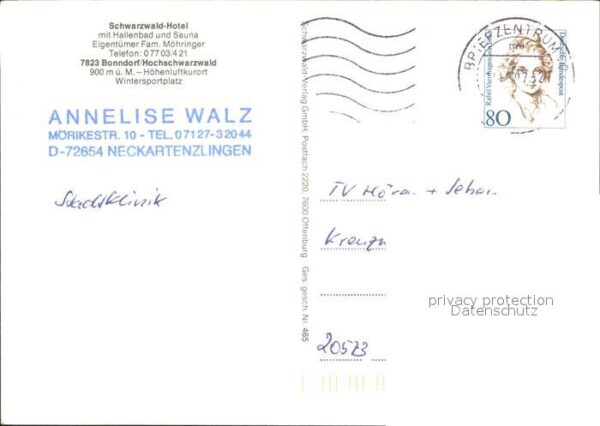 Schwarzwald-Hotel
mit Hallenbad und Sauna
Eigentümer Fam. Möhringer
Telefon: 07703/421
7823 Bonndorf/Hochschwarzwald
900 m ü. M. – Höhenluftkurort
Wintersportplatz
ANNELISE WALZ
MÖRIKESTR. 10 - TEL. 07127-32044
D-72654 NECKARTENZLINGEN
Stadtklinik
Schwarzwald-Verlag GmbH, Postfach 2220, 7600 Offenburg Ges. gesch. Nr 465
BRIEFZENTRUM
Deutsche Bundespost
80
TV Hören + Sehen
20573
privacy protection
Datenschutz